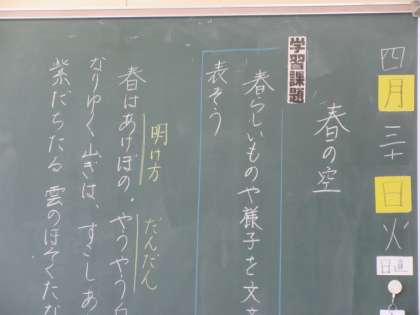 四月三十日火
日直
春の空
学習課題
春らしいものや様子を文章
表そう
明け方
だんだん
春はあけぼの。やうやう白
なりゆく山ぎは、すこしあ
紫だちたる 雲のほそくたな